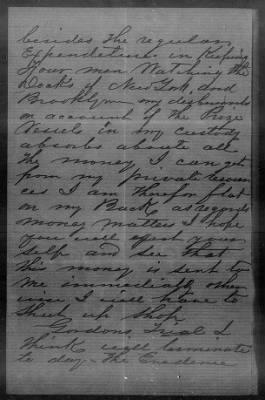 besides the regular
Expenditure in Keeping
Four men Watching the
Docks of New York, and
Brooklyn my disbursments
on account of the Prize
Vessels in my custody
absorbs about all
the money I can get
from my private resour
ces I am therfor flat
on my Back as regards
money matters I hope
you will exert your
self and see that
this money is sent to
me immediatly other
wise I will have to
Shut up Shop
Gordons Trial I
think will terminate
to day - The Evedence